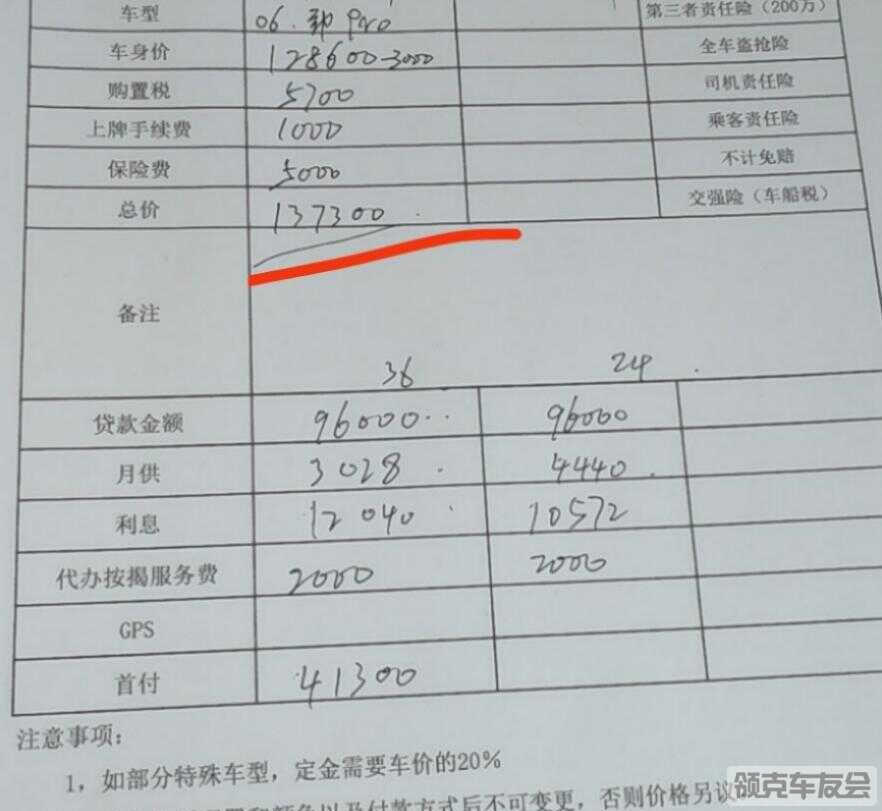 车型 06.劲Pro 第三者责任险（200万）
车身价 128600-3000 全车盗抢险
购置税 5700 司机责任险
上牌手续费 1000 乘客责任险
保险费 5000 不计免赔
总价 137300 交强险（车船税）
备注
36 24
贷款金额 96000 96000
月供 3028 4440
利息 12040 10572
代办按揭服务费 2000 2000
GPS
首付 41300
注意事项：
1，如部分特殊车型，定金需要车价的20%
颜色以及付款方式后不可变更，否则价格另议
领克车友会